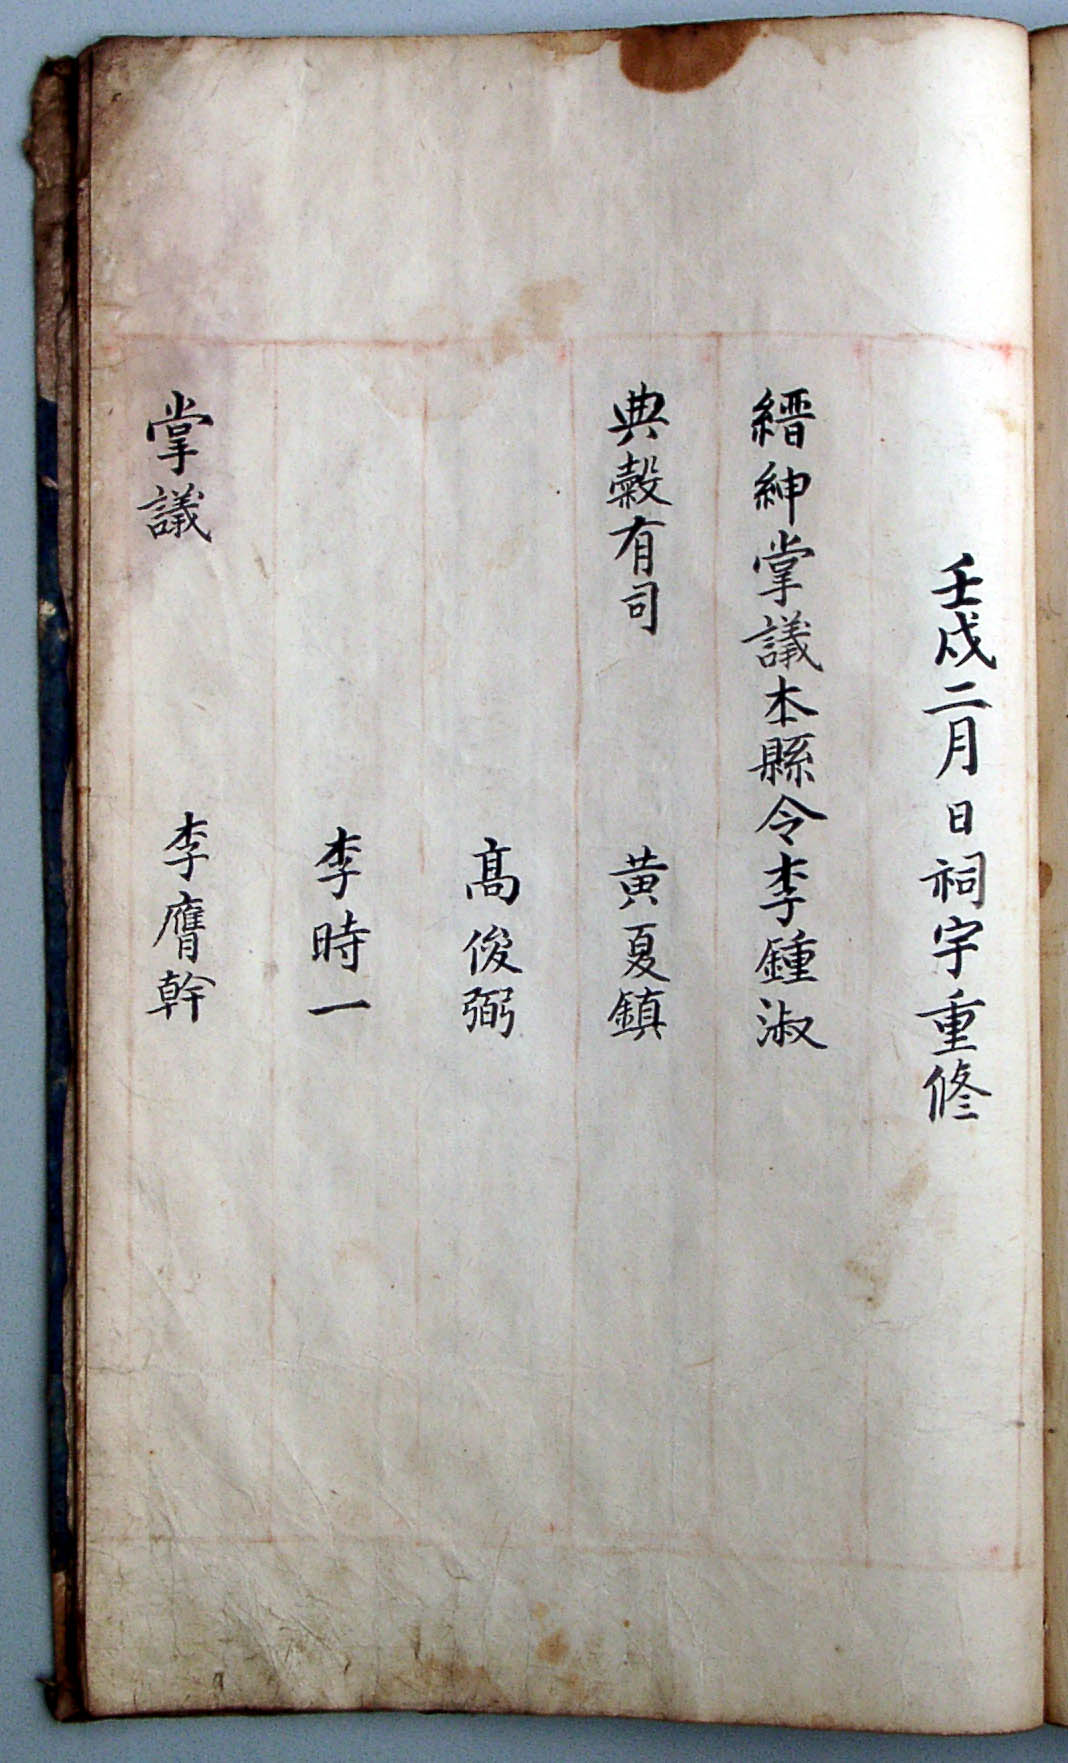 壬戌二月日祠宇重修
縉紳掌議本縣令李鍾淑
典糓有司 黃夏鎮
高俊弼
李時一
掌議 李膺幹